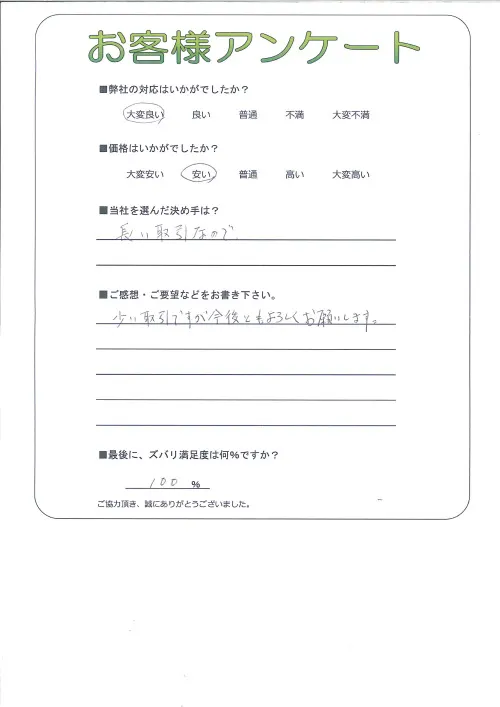 お客様アンケート
■弊社の対応はいかがでしたか？
大変良い 良い 普通 不満 大変不満
■価格はいかがでしたか？
大変安い 安い 普通 高い 大変高い
■当社を選んだ決め手は？
長い取引なので
■ご感想・ご要望などをお書き下さい。
少い取引ですが今後ともよろしくお願いします。
■最後に、ズバリ満足度は何%ですか？
100 %
ご協力頂き、誠にありがとうございました。